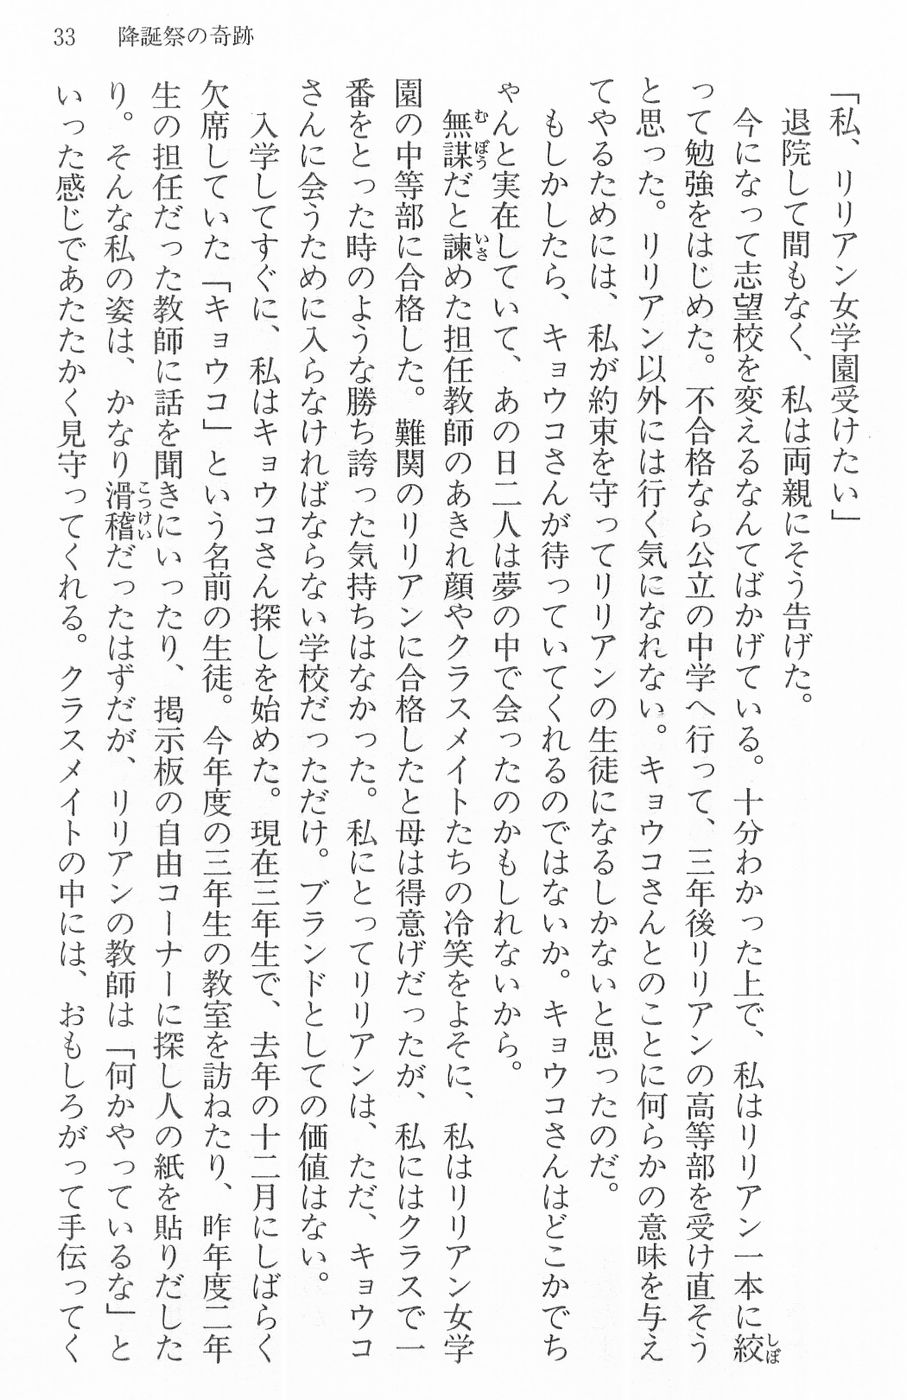 33 降誕祭の奇跡
「私、リリアン女学園受けたい」
退院して間もなく、私は両親にそう告げた。
今になって志望校を変えるなんてばかげている。十分わかった上で、私はリリアン一本に絞
って勉強をはじめた。不合格なら公立の中学へ行って、三年後リリアンの高等部を受け直そう
と思った。リリアン以外には行く気になれない。キョウコさんとのことに何らかの意味を与え
てやるためには、私が約束を守ってリリアンの生徒になるしかないと思ったのだ。
もしかしたら、キョウコさんが待っていてくれるのではないか。キョウコさんはどこかでち
ゃんと実在していて、あの日二人は夢の中で会ったのかもしれないから。
無謀だと諫めた担任教師のあきれ顔やクラスメイトたちの冷笑をよそに、私はリリアン女学
園の中等部に合格した。難関のリリアンに合格したと母は得意げだったが、私にはクラスで一
番をとった時のような勝ち誇った気持ちはなかった。私にとってリリアンは、ただ、キョウコ
さんに会うために入らなければならない学校だっただけ。ブランドとしての価値はない。
入学してすぐに、私はキョウコさん探しを始めた。現在三年生で、去年の十二月にしばらく
欠席していた「キョウコ」という名前の生徒。今年度の三年生の教室を訪ねたり、昨年度二年
生の担任だった教師に話を聞きにいったり、掲示板の自由コーナーに探し人の紙を貼りだした
り。そんな私の姿は、かなり滑稽だったはずだが、リリアンの教師は「何かやっているな」と
いった感じであたたかく見守ってくれる。クラスメイトの中には、おもしろがって手伝ってく